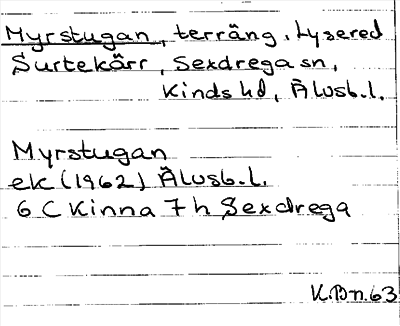 Myrstugan, terräng, Lysered
Surtekärr, Sexdrega sn,
Kinds hd, Älvsb.l.
Myrstugan
ek (1962) Älvsb.l.
6 C Kinna 7 h Sexdrega
K.Bn.63